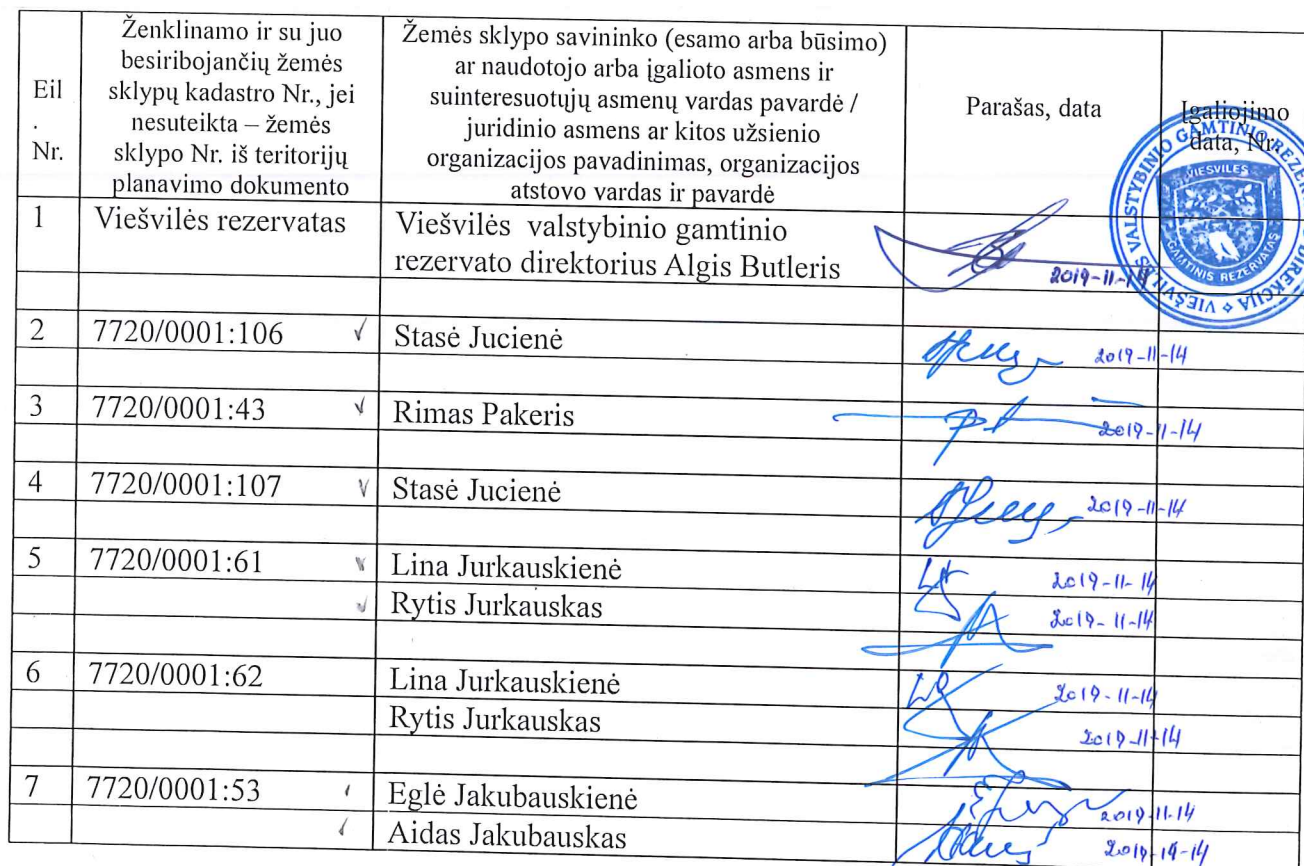 Eil
.
Nr.
Ženklinamo ir su juo
besiribojančių žemės
sklypų kadastro Nr., jei
nesuteikta – žemės
sklypo Nr. iš teritorijų
planavimo dokumento
Žemės sklypo savininko (esamo arba būsimo)
ar naudotojo arba įgalioto asmens ir
suinteresuotųjų asmenų vardas pavardė /
juridinio asmens ar kitos užsienio
organizacijos pavadinimas, organizacijos
atstovo vardas ir pavardė
Parašas, data
Įgaliojimo
data, Nr.
VIEŠVILĖS VALSTYBINIO GAMTINIO DIREKCIJA
VIEŠVILĖS
GAMTINIS REZERVATAS
1 Viešvilės rezervatas Viešvilės valstybinio gamtinio
rezervato direktorius Algis Butleris 2019-11-14
2 7720/0001:106 Stasė Jucienė 2019-11-14
3 7720/0001:43 Rimas Pakeris 2019-11-14
4 7720/0001:107 Stasė Jucienė 2019-11-14
5 7720/0001:61 Lina Jurkauskienė 2019-11-14
Rytis Jurkauskas 2019-11-14
6 7720/0001:62 Lina Jurkauskienė 2019-11-14
Rytis Jurkauskas 2019-11-14
7 7720/0001:53 Eglė Jakubauskienė 2019-11-14
Aidas Jakubauskas